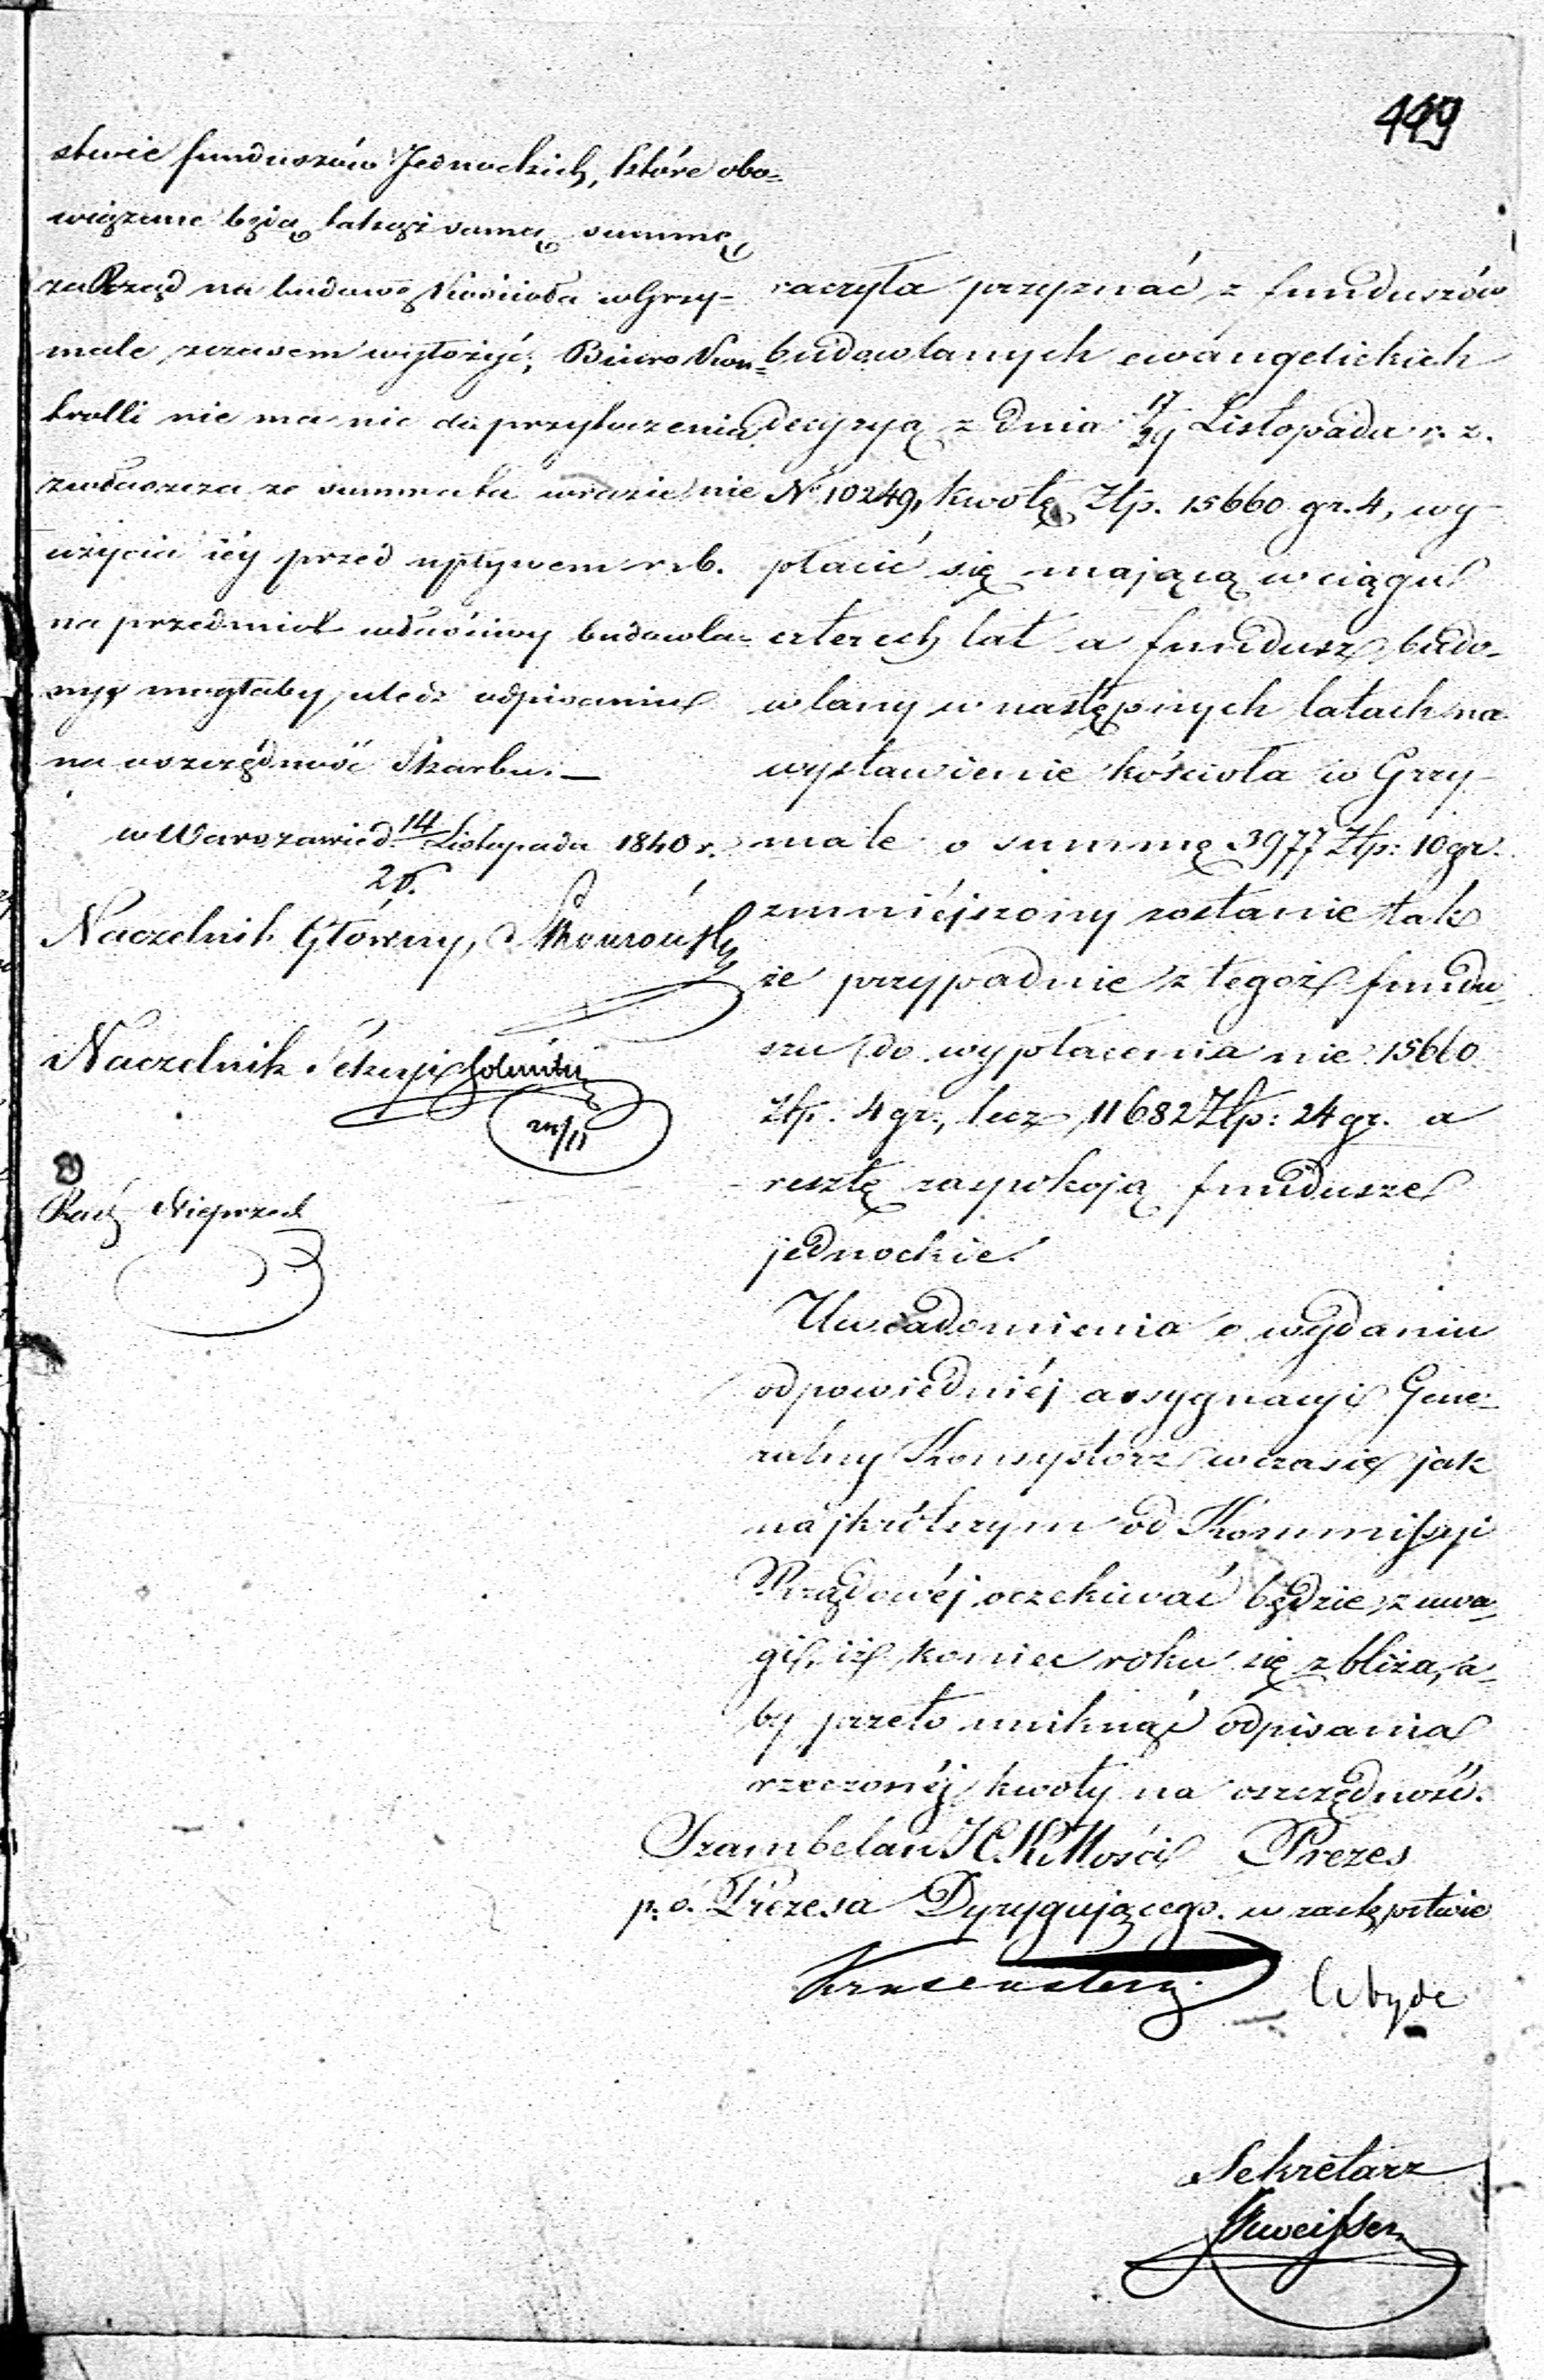 449
stwie funduszów Jednockich, które obo=
wiązane będą takąż samą summę
za Rząd na budowę Kościoła w Grzy-
male, zczasem wyłożyć; Biuro Kon=
trolli nie ma nic do przytoczenia
zwłaszcza że summa ta wrazie nie
użycia iéy przed upływem r. b.
na przedmiot właściwy budowla=
ny, mogłaby uledz odpisaniu
na oszczędność Skarbu. —
w Warszawie d. 14/26 Listopada 1840 r.
Naczelnik Główny,
Naczelnik Sekcyi
24/11
raczyła przyznać z funduszów
budowlanych ewangelickich
decyzyą z dnia 17/29 Listopada r. z.
No 10249, kwotę Złp. 15660 gr. 4, wy-
płacić się mającą w ciągu
czterech lat a fundusz budo-
wlany w następnych latach na
wystawienie kościoła w Grzy-
male o summę 3977 Złp: 10 gr.
zmniéjszony zostanie tak
że przypadnie z tegoż fundu-
szu do wypłacenia nie 15660
Złp. 4 gr., lecz 11682 Złp: 24 gr. a
resztę zaspokoją fundusze
jednockie.
Uwiadomienia o wydaniu
odpowiedniéj assygnacyi Gene-
ralny Konsystorz w czasie jak
najkrótszym od Kommissyi
Rządowéj oczekiwać będzie z uwa-
gi, iż koniec roku się zbliża, a-
by przeto uniknąć odpisania
rzeczonéj kwoty na oszczędność.
Szambelan J. C. K. Mości Prezes
p. o. Prezesa Dyrygującego. w zastępstwie
Krusenstern
Sekretarz